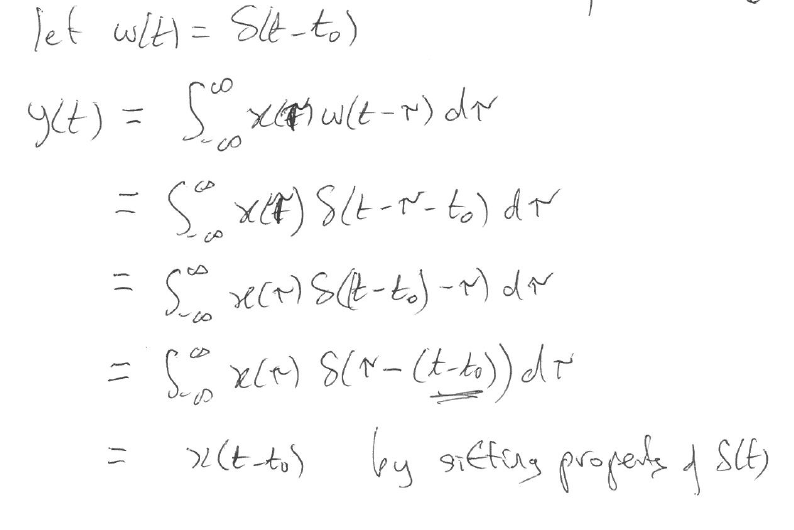 let w(t) = δ(t-t₀)
y(t) = ∫_{-∞}^{∞} x(τ) w(t-τ) dτ
= ∫_{-∞}^{∞} x(τ) δ(t-τ-t₀) dτ
= ∫_{-∞}^{∞} x(τ) δ((t-t₀)-τ) dτ
= ∫_{-∞}^{∞} x(τ) δ(τ-(t-t₀)) dτ
= x(t-t₀) by sifting property of δ(t)